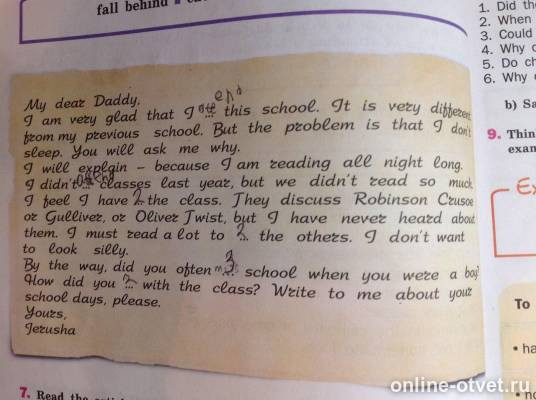 fall behind
1. Did th
2. When
3. Could
4. Why
5. Do ch
6. Why
b) Sa
9. Thin
exam
My dear Daddy,
I am very glad that I ... this school. It is very different
from my previous school. But the problem is that I don't
sleep. You will ask me why.
I will explain – because I am reading all night long.
I didn't ... classes last year, but we didn't read so much.
I feel I have ... the class. They discuss Robinson Crusoe
or Gulliver, or Oliver Twist, but I have never heard about
them. I must read a lot to ... the others. I don't want
to look silly.
By the way, did you often ... school when you were a boy?
How did you ... with the class? Write to me about your
school days, please.
Yours,
Jerusha
To
• ha
7. Read the
online-otvet.ru